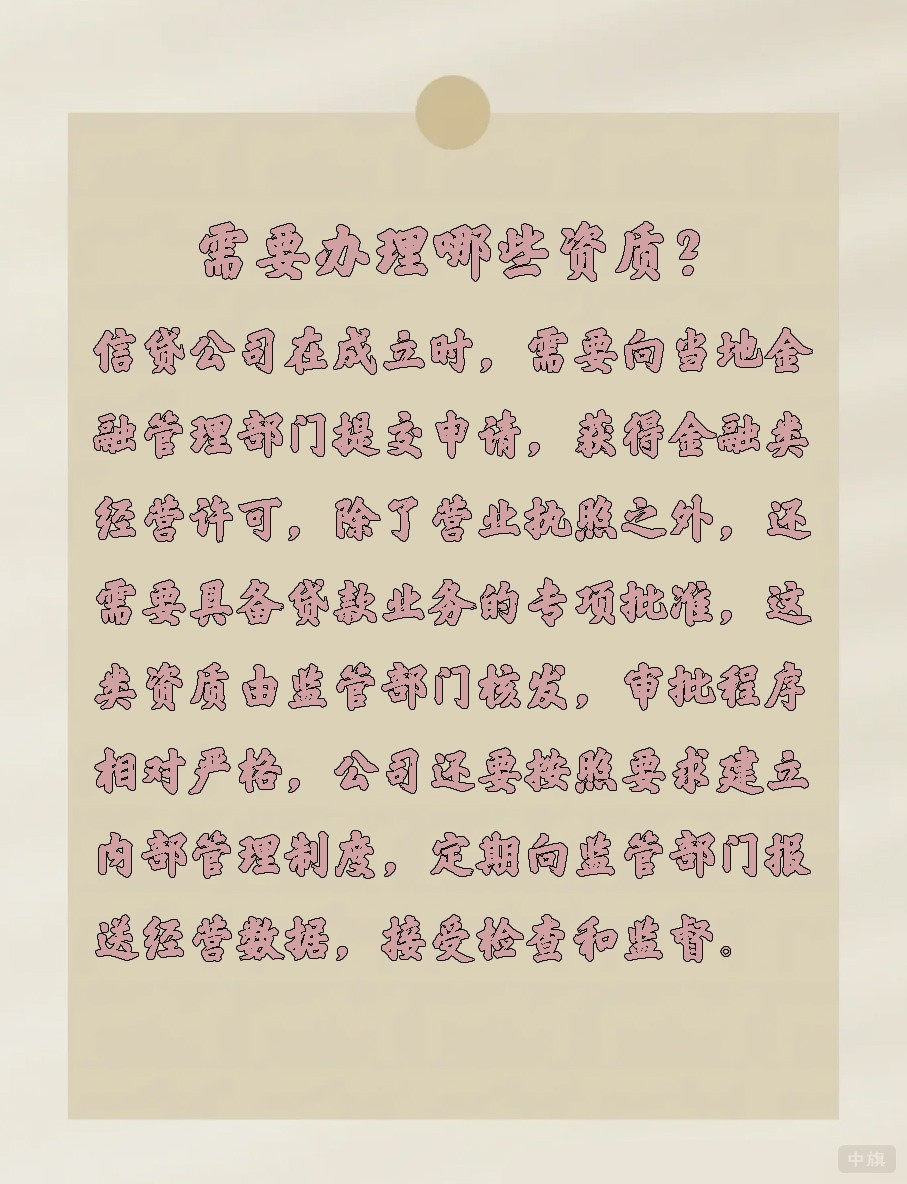 需要办理哪些资质?
信贷公司在成立时，需要向当地金
融管理部门提交申请，获得金融类
经营许可，除了营业执照之外，还
需要具备贷款业务的专项批准，这
类资质由监管部门核发，审批程序
相对严格，公司还要按照要求建立
内部管理制度，定期向监管部门报
送经营数据，接受检查和监督。
中旗